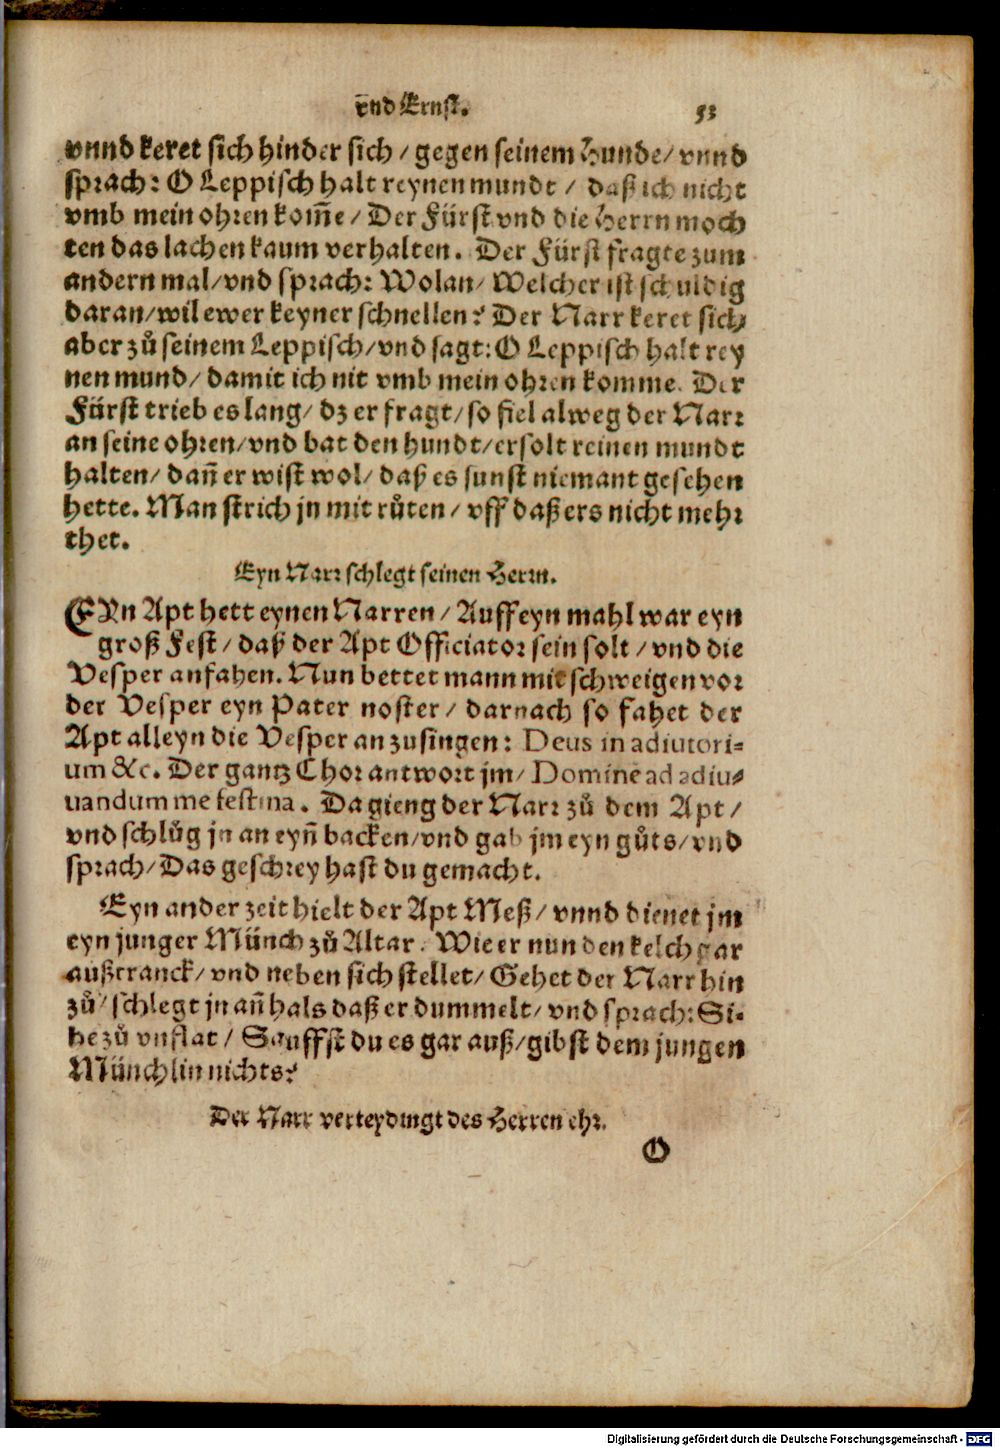 vnd Ernst. 53
vnnd keret sich hinder sich / gegen seinem Hunde / vnnd
sprach: O Leppisch halt reynen mundt / daß ich nicht
vmb mein ohren kom̃e / Der Fürst vnd die Herrn moch
ten das lachen kaum verhalten. Der Fürst fragte zum
andern mal / vnd sprach: Wolan / Welcher ist schuldig
daran / wil ewer keyner schnellen? Der Narr keret sich
aber zů seinem Leppisch / vnd sagt: O Leppisch halt rey
nen mund / damit ich nit vmb mein ohren komme. Der
Fürst trieb es lang / dz er fragt / so fiel alweg der Narr
an seine ohren / vnd bat den hundt / er solt reinen mundt
halten / dañ er wist wol / daß es sunst niemant gesehen
hette. Man strich jn mit růten / vff daß ers nicht mehr
thet.
Eyn Narr schlegt seinen Herrn.
EYn Apt hett eynen Narren / Auff eyn mahl war eyn
groß Fest / daß der Apt Officiator sein solt / vnd die
Vesper anfahen. Nun bettet mann mit schweigen vor
der Vesper eyn Pater noster / darnach so fahet der
Apt alleyn die Vesper an zu singen: Deus in adiutori-
um &c. Der gantz Chor antwort jm / Domine ad adiu-
uandum me festina. Da gieng der Narr zů dem Apt /
vnd schlůg jn an eyñ backen / vnd gab jm eyn gůts / vnd
sprach / Das geschrey hast du gemacht.
Eyn ander zeit hielt der Apt Meß / vnnd dienet jm
eyn junger Münch zů Altar. Wie er nun den kelch gar
außtranck / vnd neben sich stellet / Gehet der Narr hin
zů / schlegt jn añ hals daß er dummelt / vnd sprach: Si-
he zů vnflat / Sauffst du es gar auß / gibst dem jungen
Münchlin nichts?
Der Narr verteydingt des Herren ehr.
O
Digitalisierung gefördert durch die Deutsche Forschungsgemeinschaft - DFG